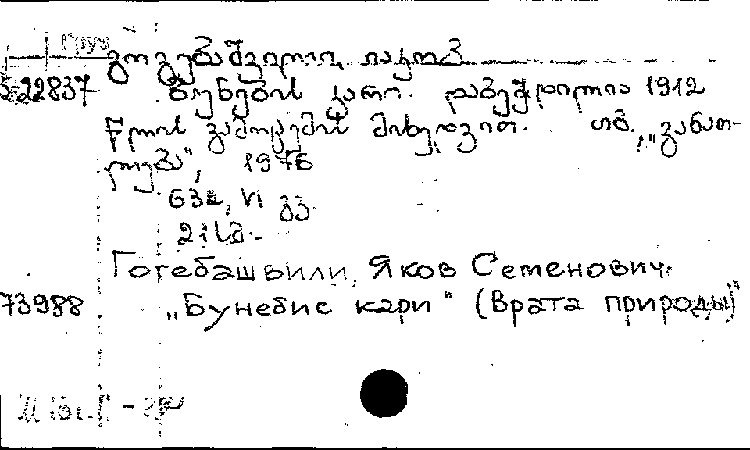 გოგებაშვილი, იაკობ
5-22837 ბუნების კარი. დაბეჭდილია 1912
წლის გამოცემის მიხედვით. თბ., „განათ-
ლება“, 1976
632, VI გვ.
Гогебашвили, Яков Семенович.
73988 „Бунебис кари“ (Врата природы)“